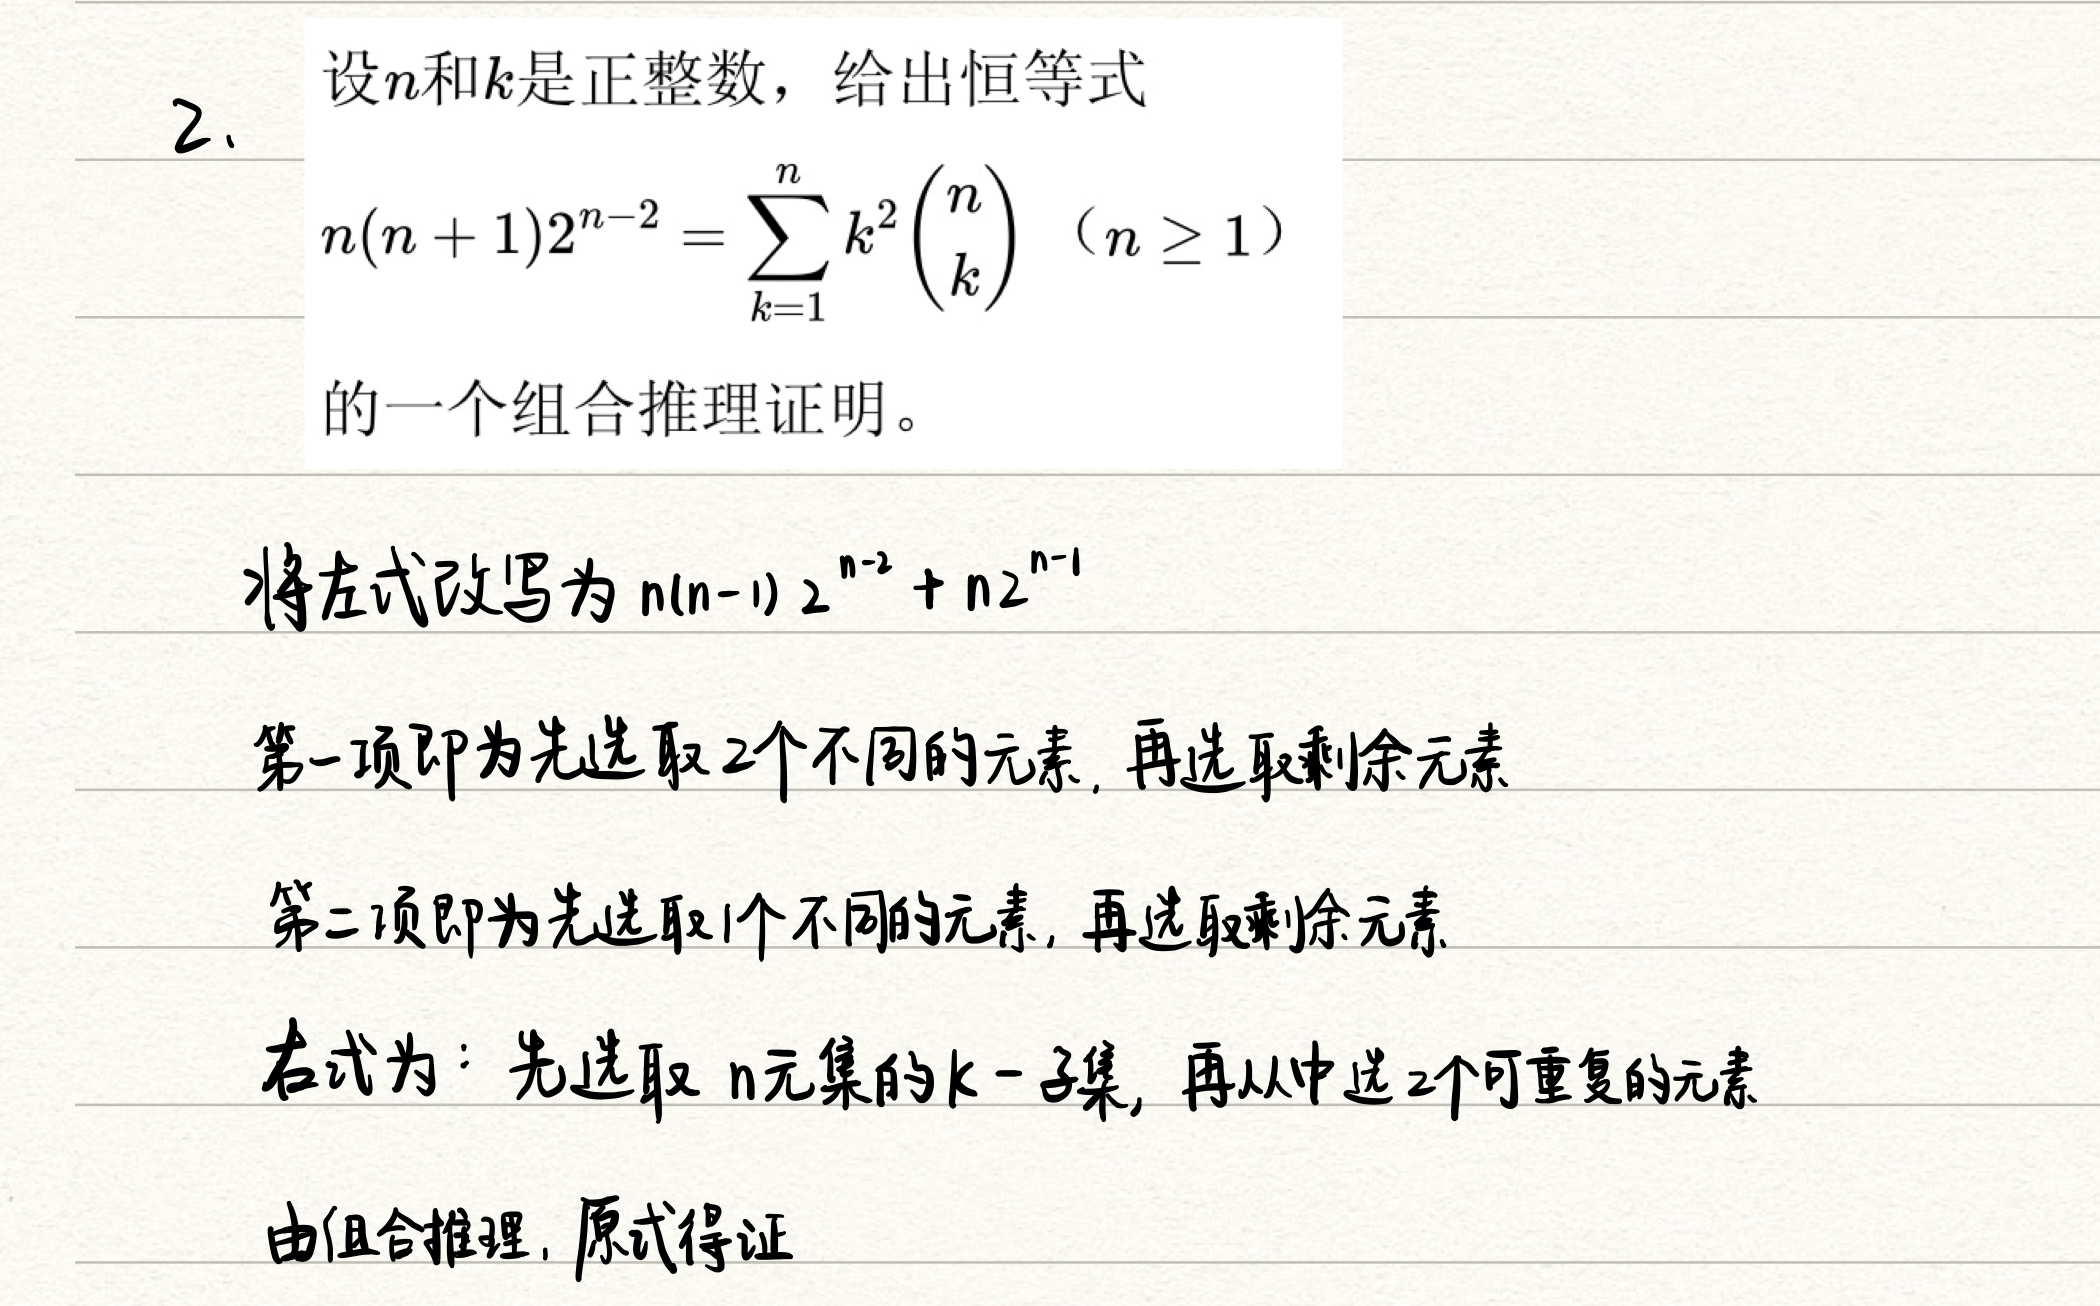 2、
设n和k是正整数，给出恒等式
n(n + 1)2^{n-2} = \sum_{k=1}^{n} k^2 \binom{n}{k} （n ≥ 1）
的一个组合推理证明。
将左式改写为 n(n-1) 2^{n-2} + n2^{n-1}
第一项即为先选取2个不同的元素, 再选取剩余元素
第二项即为先选取1个不同的元素, 再选取剩余元素
右式为: 先选取 n元集的k-子集, 再从中选2个可重复的元素
由组合推理, 原式得证